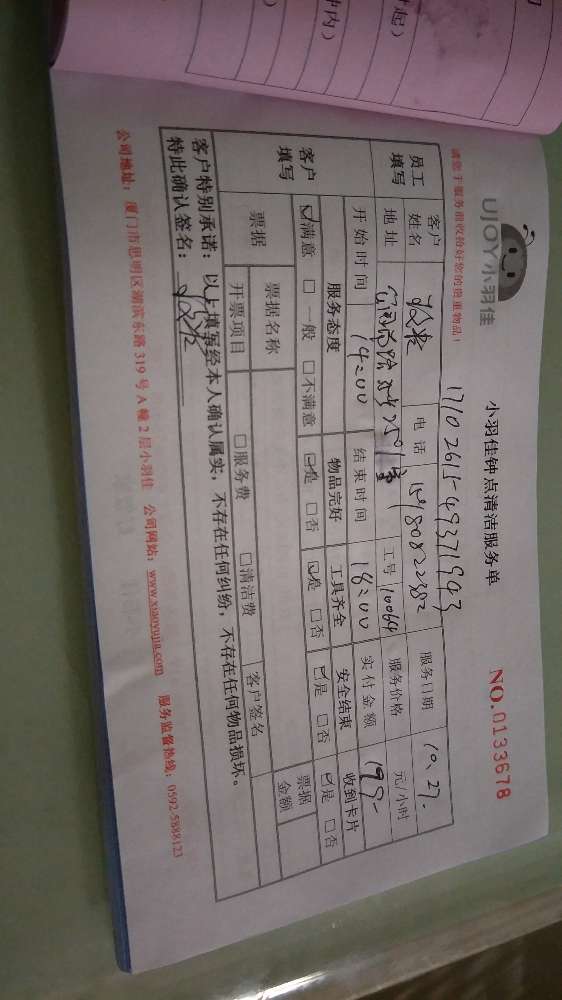 时内)
时起)
UJOY小羽佳
小羽佳钟点清洁服务单
NO.0133678
请您于服务前收拾好您的贵重物品!
17102615-49371943
员工填写
客户姓名
电话
服务日期 10.27.
地址
工号 10064
服务价格 元/小时
客户填写
开始时间 14:00 结束时间 18:00 实付金额
服务态度 物品完好 工具齐全 安全结束 收到卡片
☑满意 □一般 □不满意 ☑是 □否 ☑是 □否 ☑是 □否 ☑是 □否
票据
票据名称
票据金额
开票项目 □服务费 □清洁费 客户签名
客户特别承诺:以上填写经本人确认属实,不存在任何纠纷,不存在任何物品损坏。
特此确认签名:
公司地址:厦门市思明区湖滨东路319号A幢2层小羽佳 公司网站:www.xiaoyujia.com 服务监督热线:0592-5888123